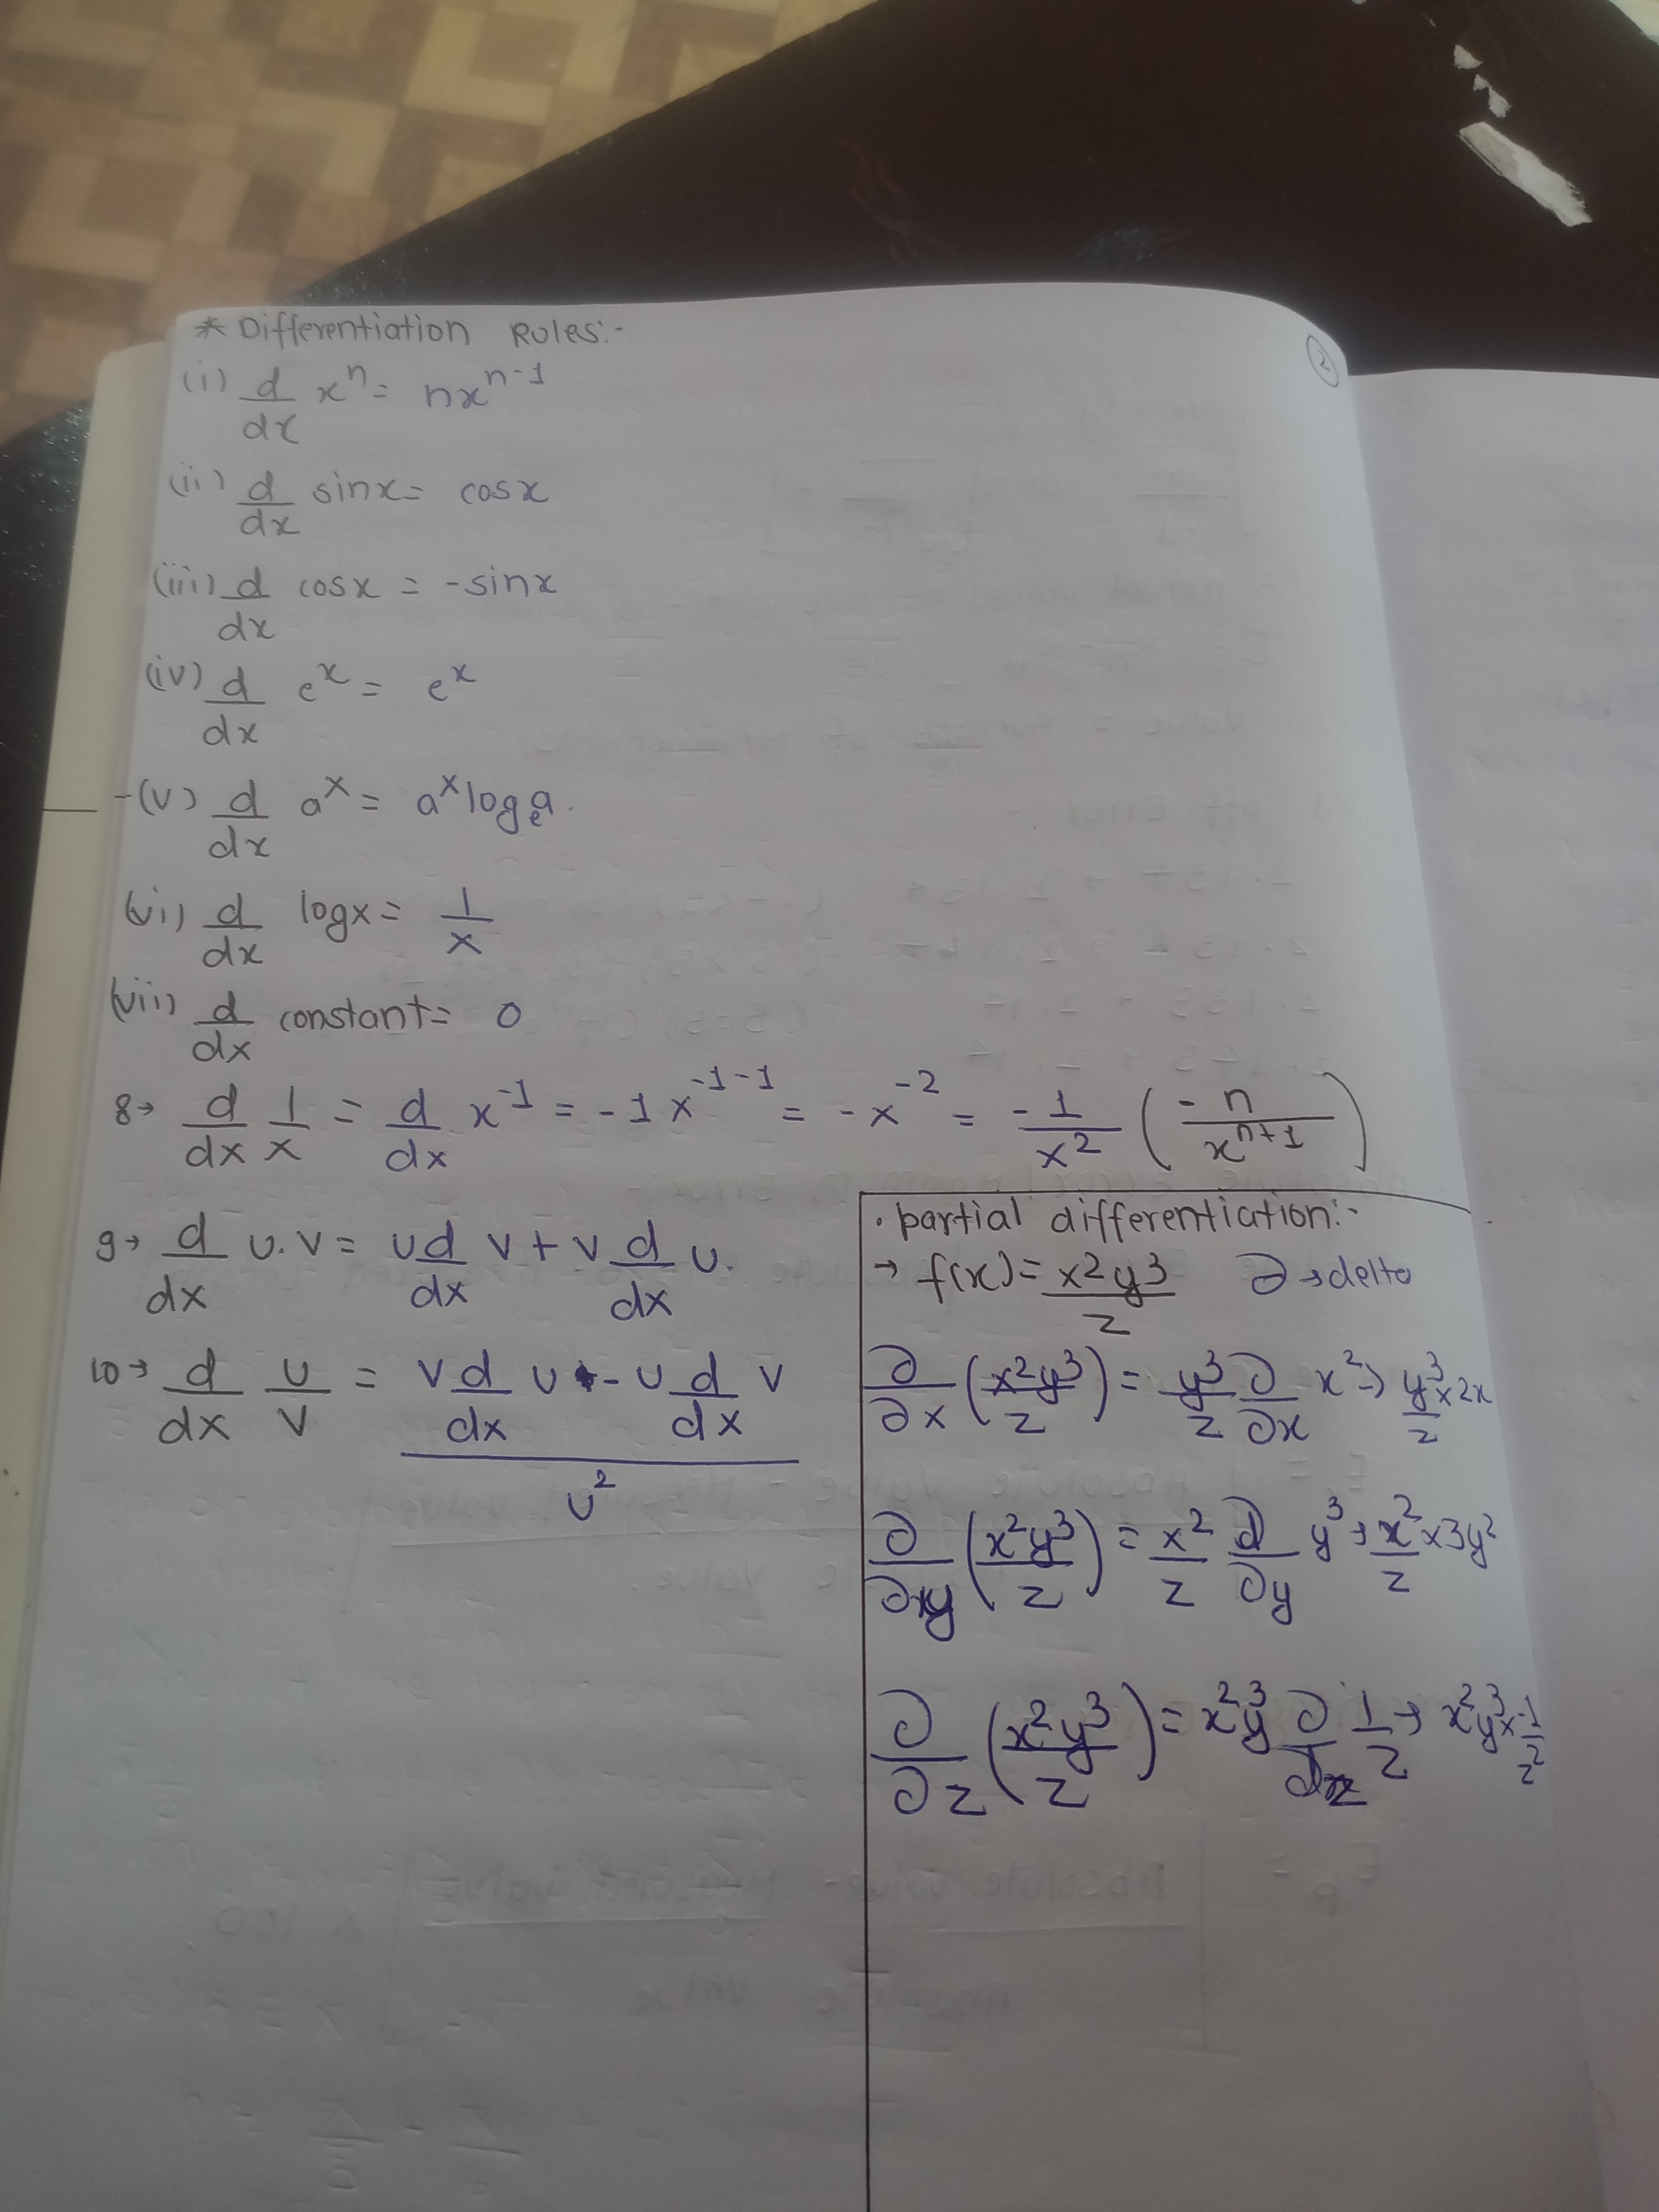 * Differentiation Rules:-
(i) d/dx xⁿ = nxⁿ⁻¹
(ii) d/dx sinx = cosx
(iii) d/dx cosx = -sinx
(iv) d/dx eˣ = eˣ
(v) d/dx aˣ = aˣ logₑa.
(vi) d/dx logx = 1/x
(vii) d/dx constant = 0
8→ d/dx 1/x = d/dx x⁻¹ = -1x⁻¹⁻¹ = -x⁻² = -1/x² (-n/xⁿ⁺¹)
9→ d/dx u.v = u d/dx v + v d/dx u.
10→ d/dx u/v = (v d/dx u - u d/dx v)/u²
• partial differentiation:-
→ f(x) = x²y³/z ∂→delta
∂/∂x (x²y³/z) = y³/z ∂/∂x x² → y³/z × 2x
∂/∂y (x²y³/z) = x²/z ∂/∂y y³ → x²/z × 3y²
∂/∂z (x²y³/z) = x²y³ ∂/∂z 1/z → x²y³ × -1/z²
2